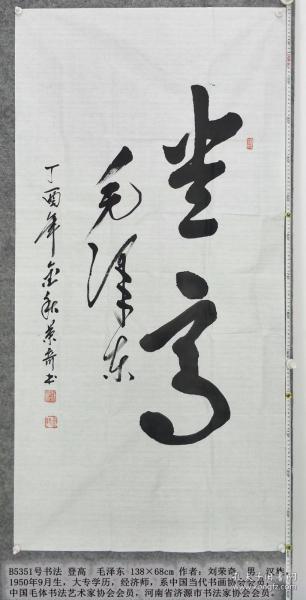 登高
毛泽东
丁酉年金秋荣奇书
B5351号书法 登高 毛泽东 138×68cm 作者：刘荣奇，男，汉族
1950年9月生，大专学历，经济师，系中国当代书画协会会员，
中国毛体书法艺术家协会会员，河南省济源市书法家协会会员，